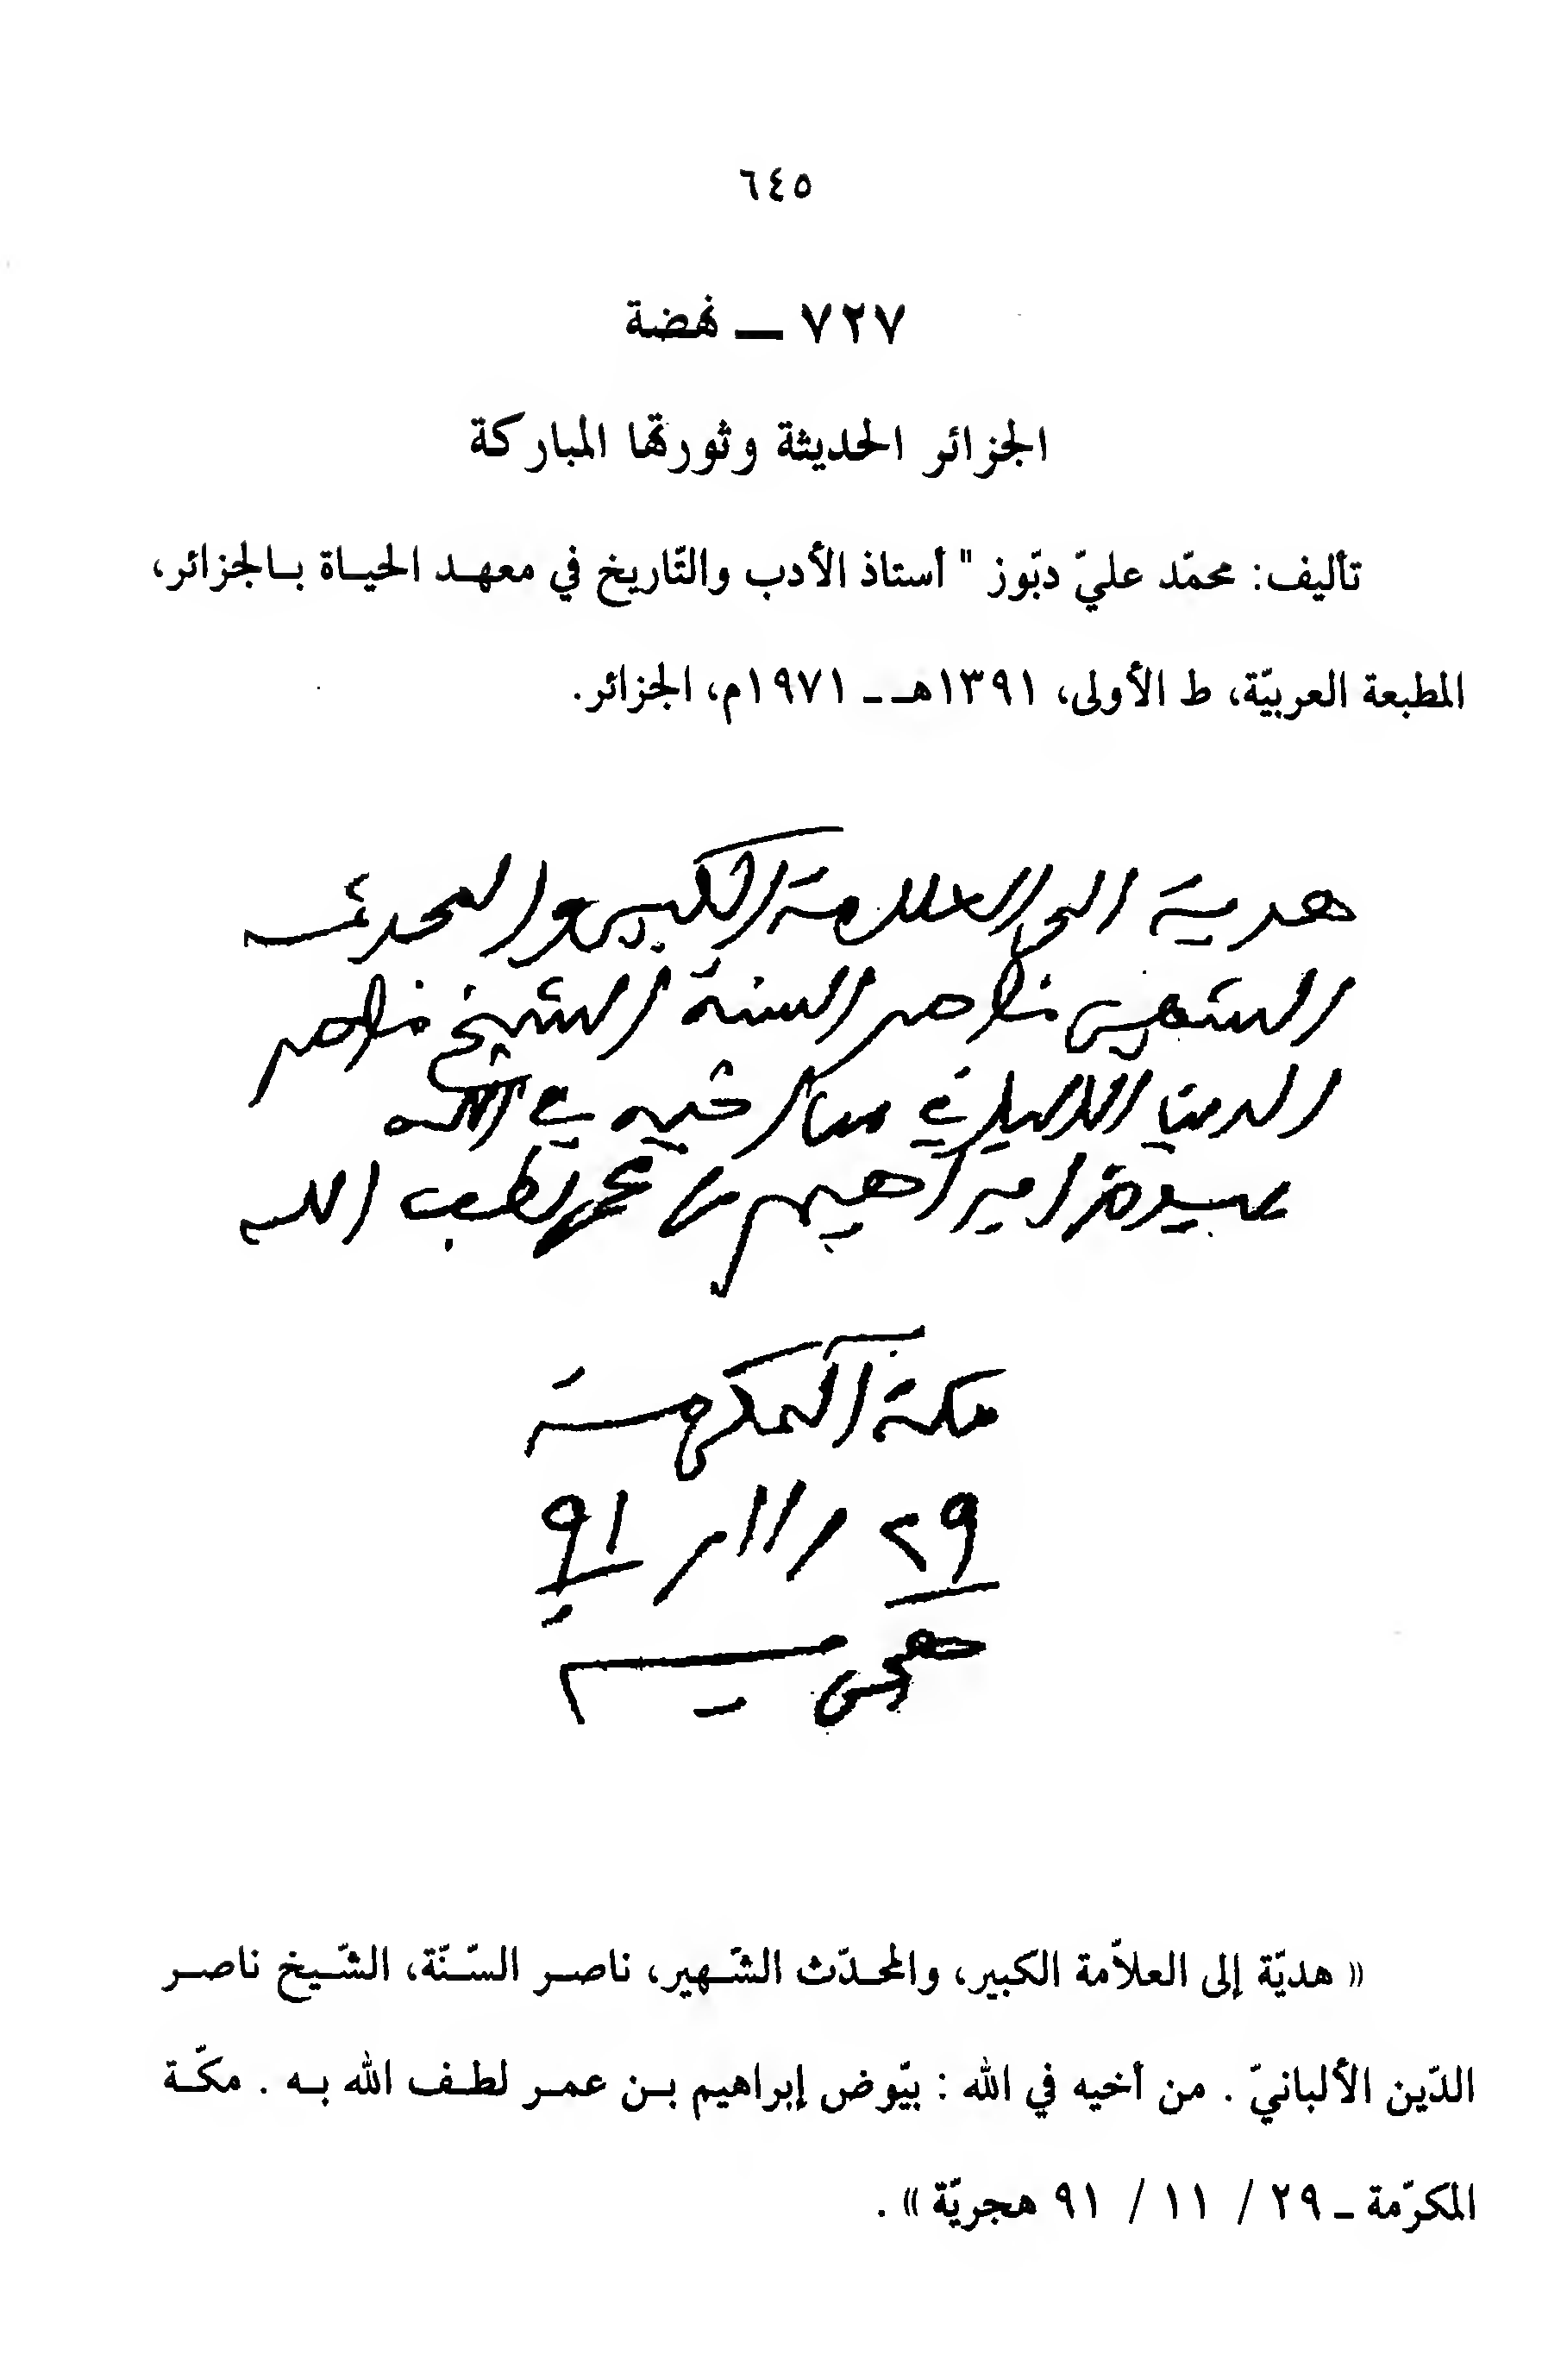 ٦٤٥
٧٢٧ — نهضة
الجزائر الحديثة وثورتها المباركة
تأليف: محمّد عليّ دبّوز " أستاذ الأدب والتّاريخ في معهد الحياة بالجزائر،
المطبعة العربيّة، ط الأولى، ١٣٩١هـ - ١٩٧١م، الجزائر.
هدية الى العلامة الكبير والمحدث
الشهير ناصر السنة الشيخ ناصر
الدين الالباني من اخيه في الله
بيوض ابراهيم بن عمر لطف الله به
مكة المكرمة
٢٩ / ١١ / ٩١
هجرية
« هديّة إلى العلاّمة الكبير، والمحدّث الشّهير، ناصر السّنّة، الشّيخ ناصر
الدّين الألبانيّ . من أخيه في الله : بيّوض إبراهيم بن عمر لطف الله به . مكّة
المكرّمة - ٢٩ / ١١ / ٩١ هجريّة » .